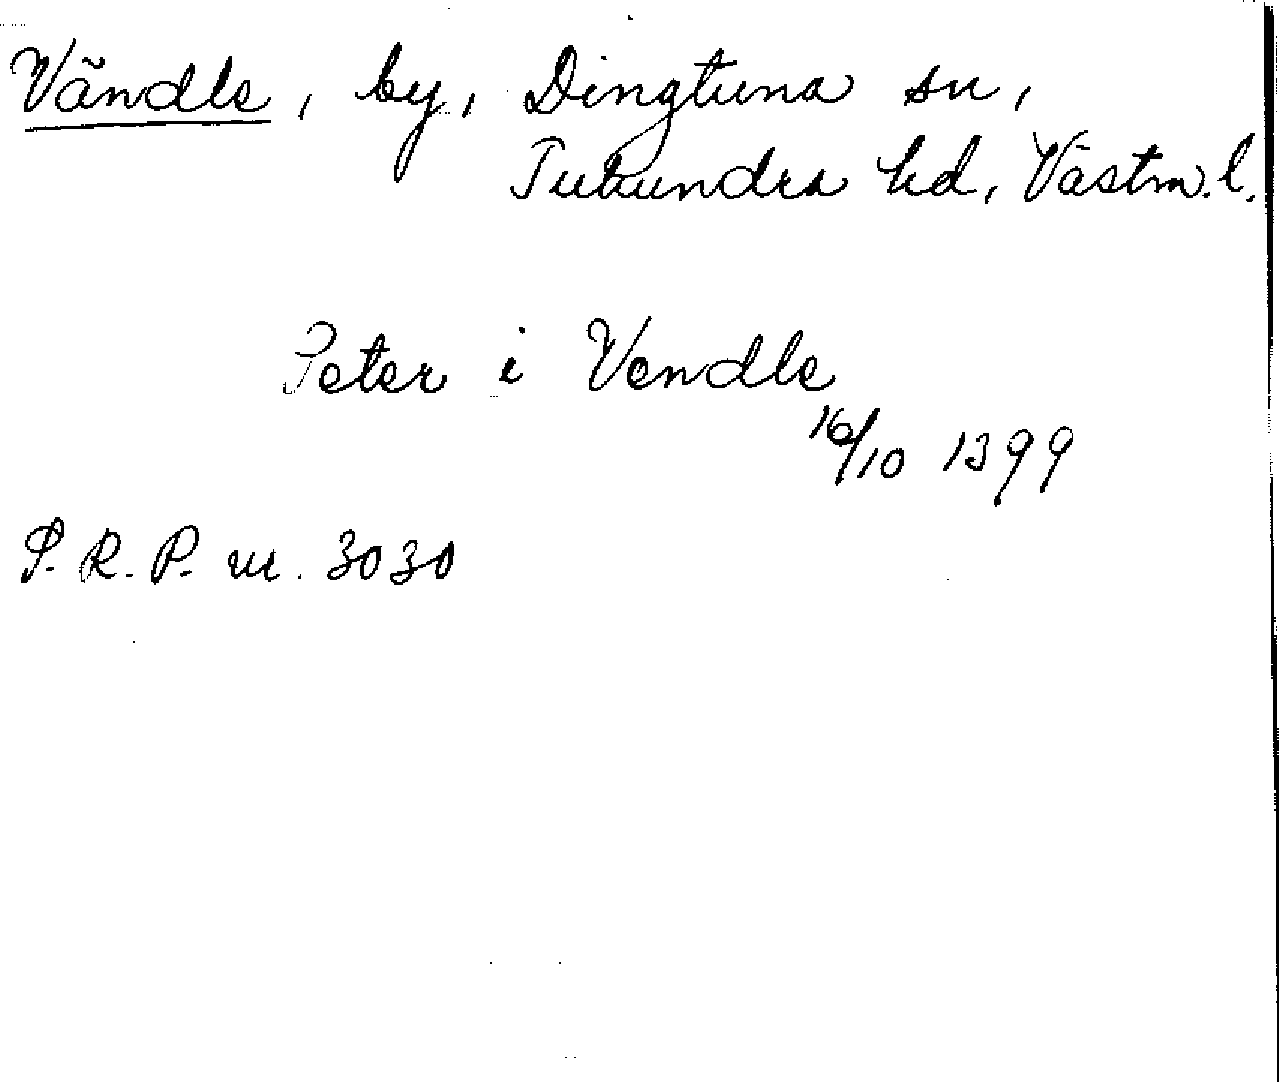 Vändle, by, Dingtuna sn,
Tuhundra hd, Västm. l.
Peter i Vendle
16/10 1399
S.R.P. nr. 3030